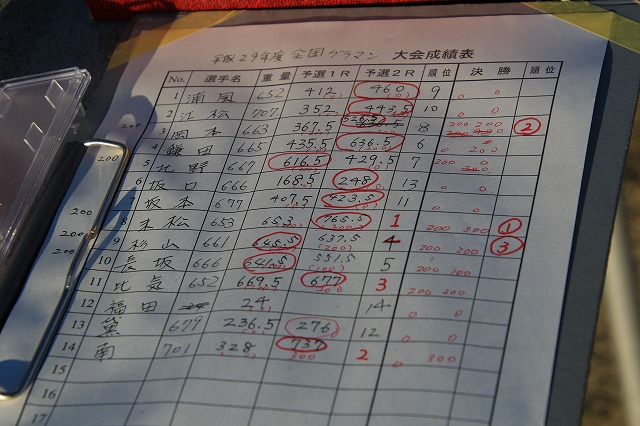 平成29年度 全国グラマン 大会成績表
No. 選手名 重量 予選1R 予選2R 順位 決勝 順位
1 浦風 652 412 460 9 0 0
2 江松 707 352 443.5 10 0 0
200 3 岡本 663 367.5 526.5 8 200 200 ②
4 鎌田 665 435.5 636.5 6 0 200
200 5 北野 667 616.5 429.5 7 200
6 坂口 666 168.5 248 13 0 0
7 坂本 677 407.5 423.5 11 0 0
200 8 末松 653 653 765.5 1 200 300 ①
200 9 杉山 661 645.5 637.5 4 200 200 ③
200 10 長坂 666 641.5 551.5 5 200 100
11 比気 652 669.5 677 3 200 200
12 福田 24 14
13 黛 679 236.5 276 12 0 0
14 南 701 328 737 2 0 300
15
16
17